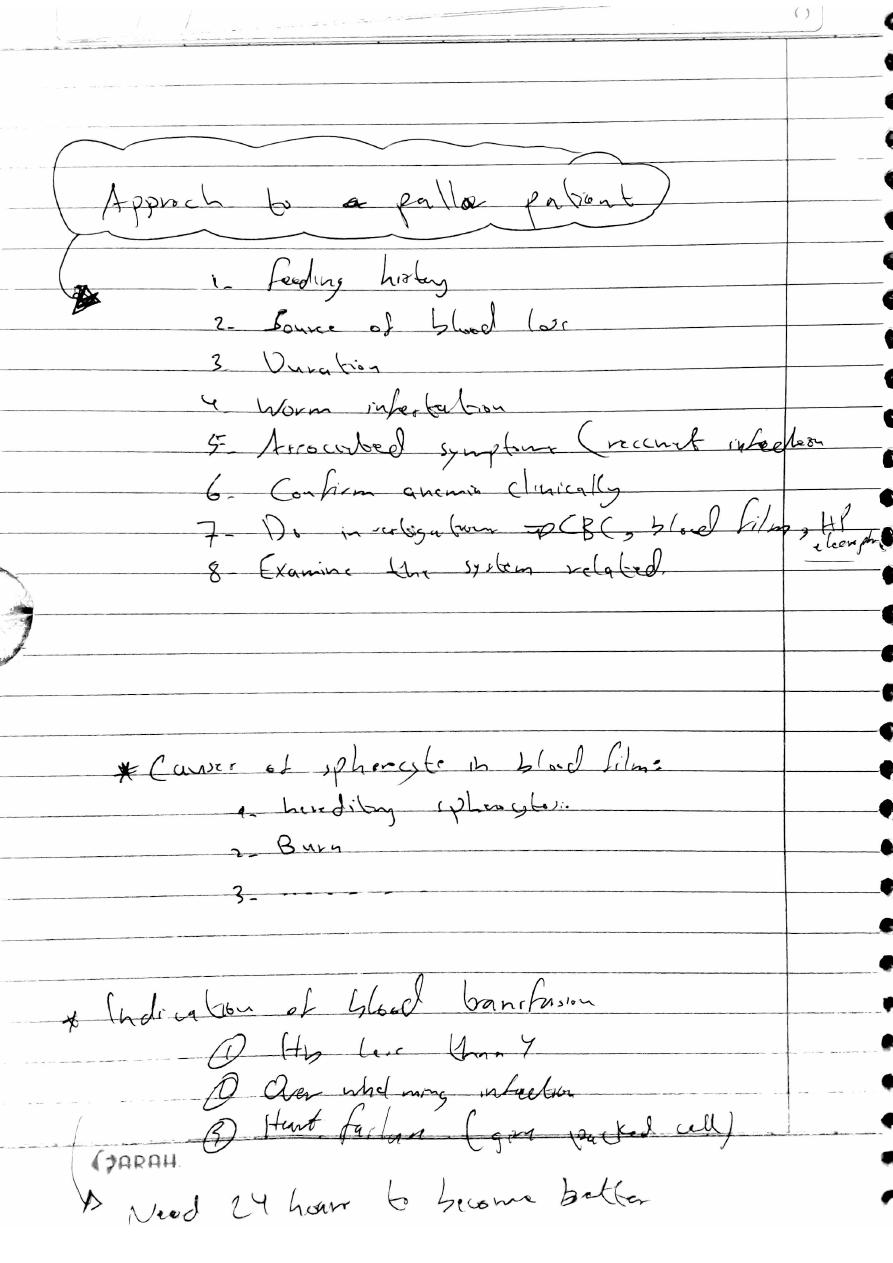 Approch to a pallor patient
1- Feeding history
2- Source of blood loss
3- Duration
4- Worm infestation
5- Associated symptoms (reccurent infection
6- Confirm anemia clinically
7- Do investigation ⇒ CBC, blood film, HP
electroph
8- Examine the system related.
* Causes of spherocyte in blood film:
1- hereditary spherocytosis
2- Burn
3- --------
* Indication of blood transfusion
① Hb less than 4
② Over whelming infection
③ Heart failure (give packed cell)
SARAH
Need 24 hour to become better